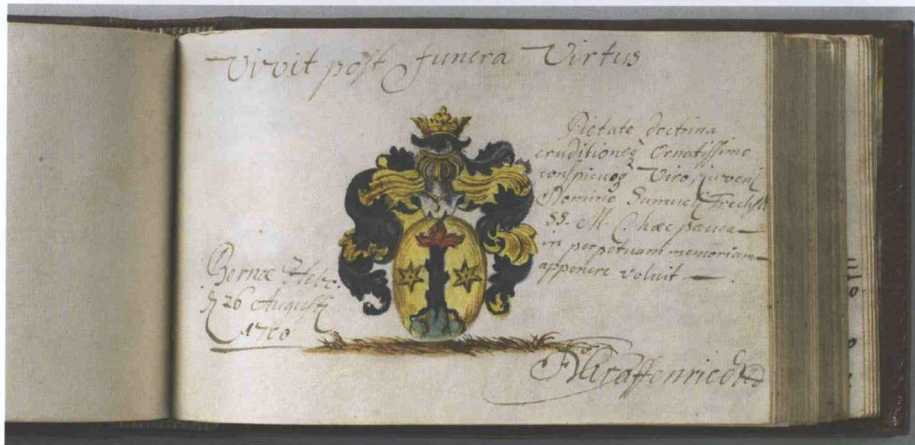 Vivit post funera Virtus
Pietate doctrina
eruditioneq Ornatissimo
conspicuoq Viro, juveni
Domino Samueli
SS. M. C. hæc pauca
in perpetuam memoriam
apponere voluit
Bernæ Helv.
26 Augusti
Graffenriedt